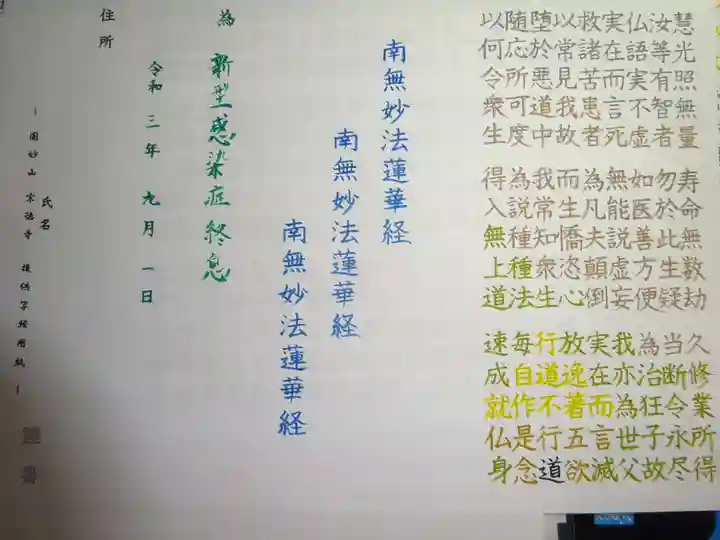 慧光照無量 寿命無数劫 久修業所得
汝等有智者 勿於此生疑 当断令永尽
仏語実不虚 如医善方便 為治狂子故
実在而言死 無能説虚妄 我亦為世父
救諸苦患者 為凡夫顛倒 実在而言滅
以常見我故 而生憍恣心 放逸著五欲
堕於悪道中 我常知衆生 行道不行道
随応所可度 為説種種法 毎自作是念
以何令衆生 得入無上道 速成就仏身
南無妙法蓮華経
南無妙法蓮華経
南無妙法蓮華経
為 新型感染症終息
令和三年九月一日
住所
氏名
妙山 宗徳寺 提供写経用紙
謹書